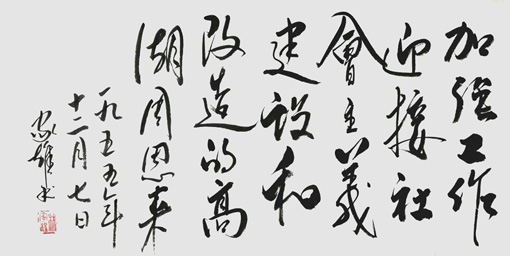 加强工作
迎接社
會主义
建设和
改造的高
湖周恩来
一九五五年
十二月七日
家雄书